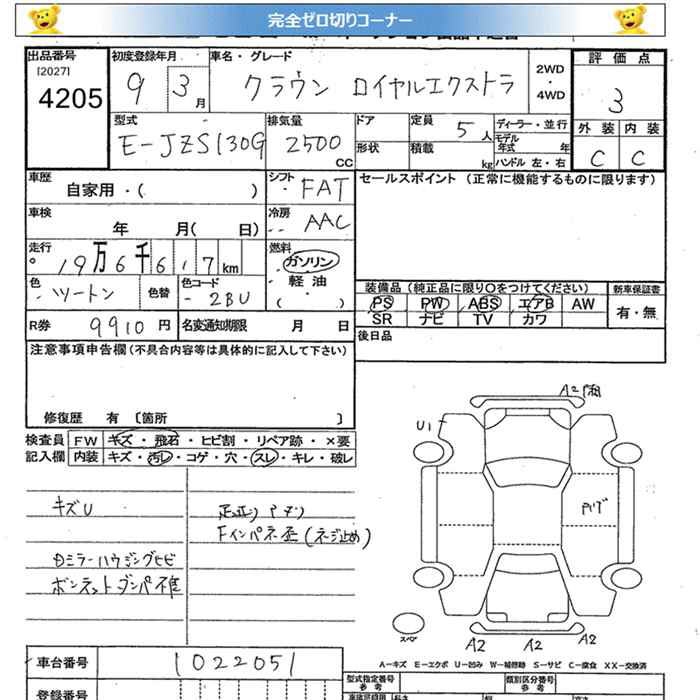 完全ゼロ切りコーナー
出品番号
[2027]
4205
初度登録年月
9 3 月
車名・グレード
クラウン ロイヤルエクストラ
2WD
・
4WD
評価点
3
外装 内装
C C
型式
E-JZS130G
排気量
2500
CC
ドア
形状
定員 5人
積載 kg
ディーラー・並行
モデル
年式 年
ハンドル 左・右
車歴
自家用・( )
シフト
FAT
セールスポイント (正常に機能するものに限ります)
車検
年 月( 日)
冷房
AAC
走行
19万6千617km
燃料
ガソリン
軽油
( )
色
ツートン
色替
色コード
2BU
装備品(純正品に限り○をつけてください)
PS PW ABS エアB AW
SR ナビ TV カワ
新車保証書
有・無
R券 9910円
名変通知期限 月 日
後日品
注意事項申告欄(不具合内容等は具体的に記入して下さい)
修復歴 有 〔箇所 〕
検査員
記入欄
FW キズ・飛石・ヒビ割・リペア跡・×要
内装 キズ・汚レ・コゲ・穴・スレ・キレ・破レ
キズU
Dミラーハウジングヒビ
ボンネットダンパ不良
Fインパネ歪(ネジ止め)
A2
U1
スペア
A2 A2 A2
A-キズ E-エクボ U-凹み W-補修跡 S-サビ C-腐食 XX-交換済
車台番号
1022051
登録番号
型式指定番号
参考
類別区分番号
参考